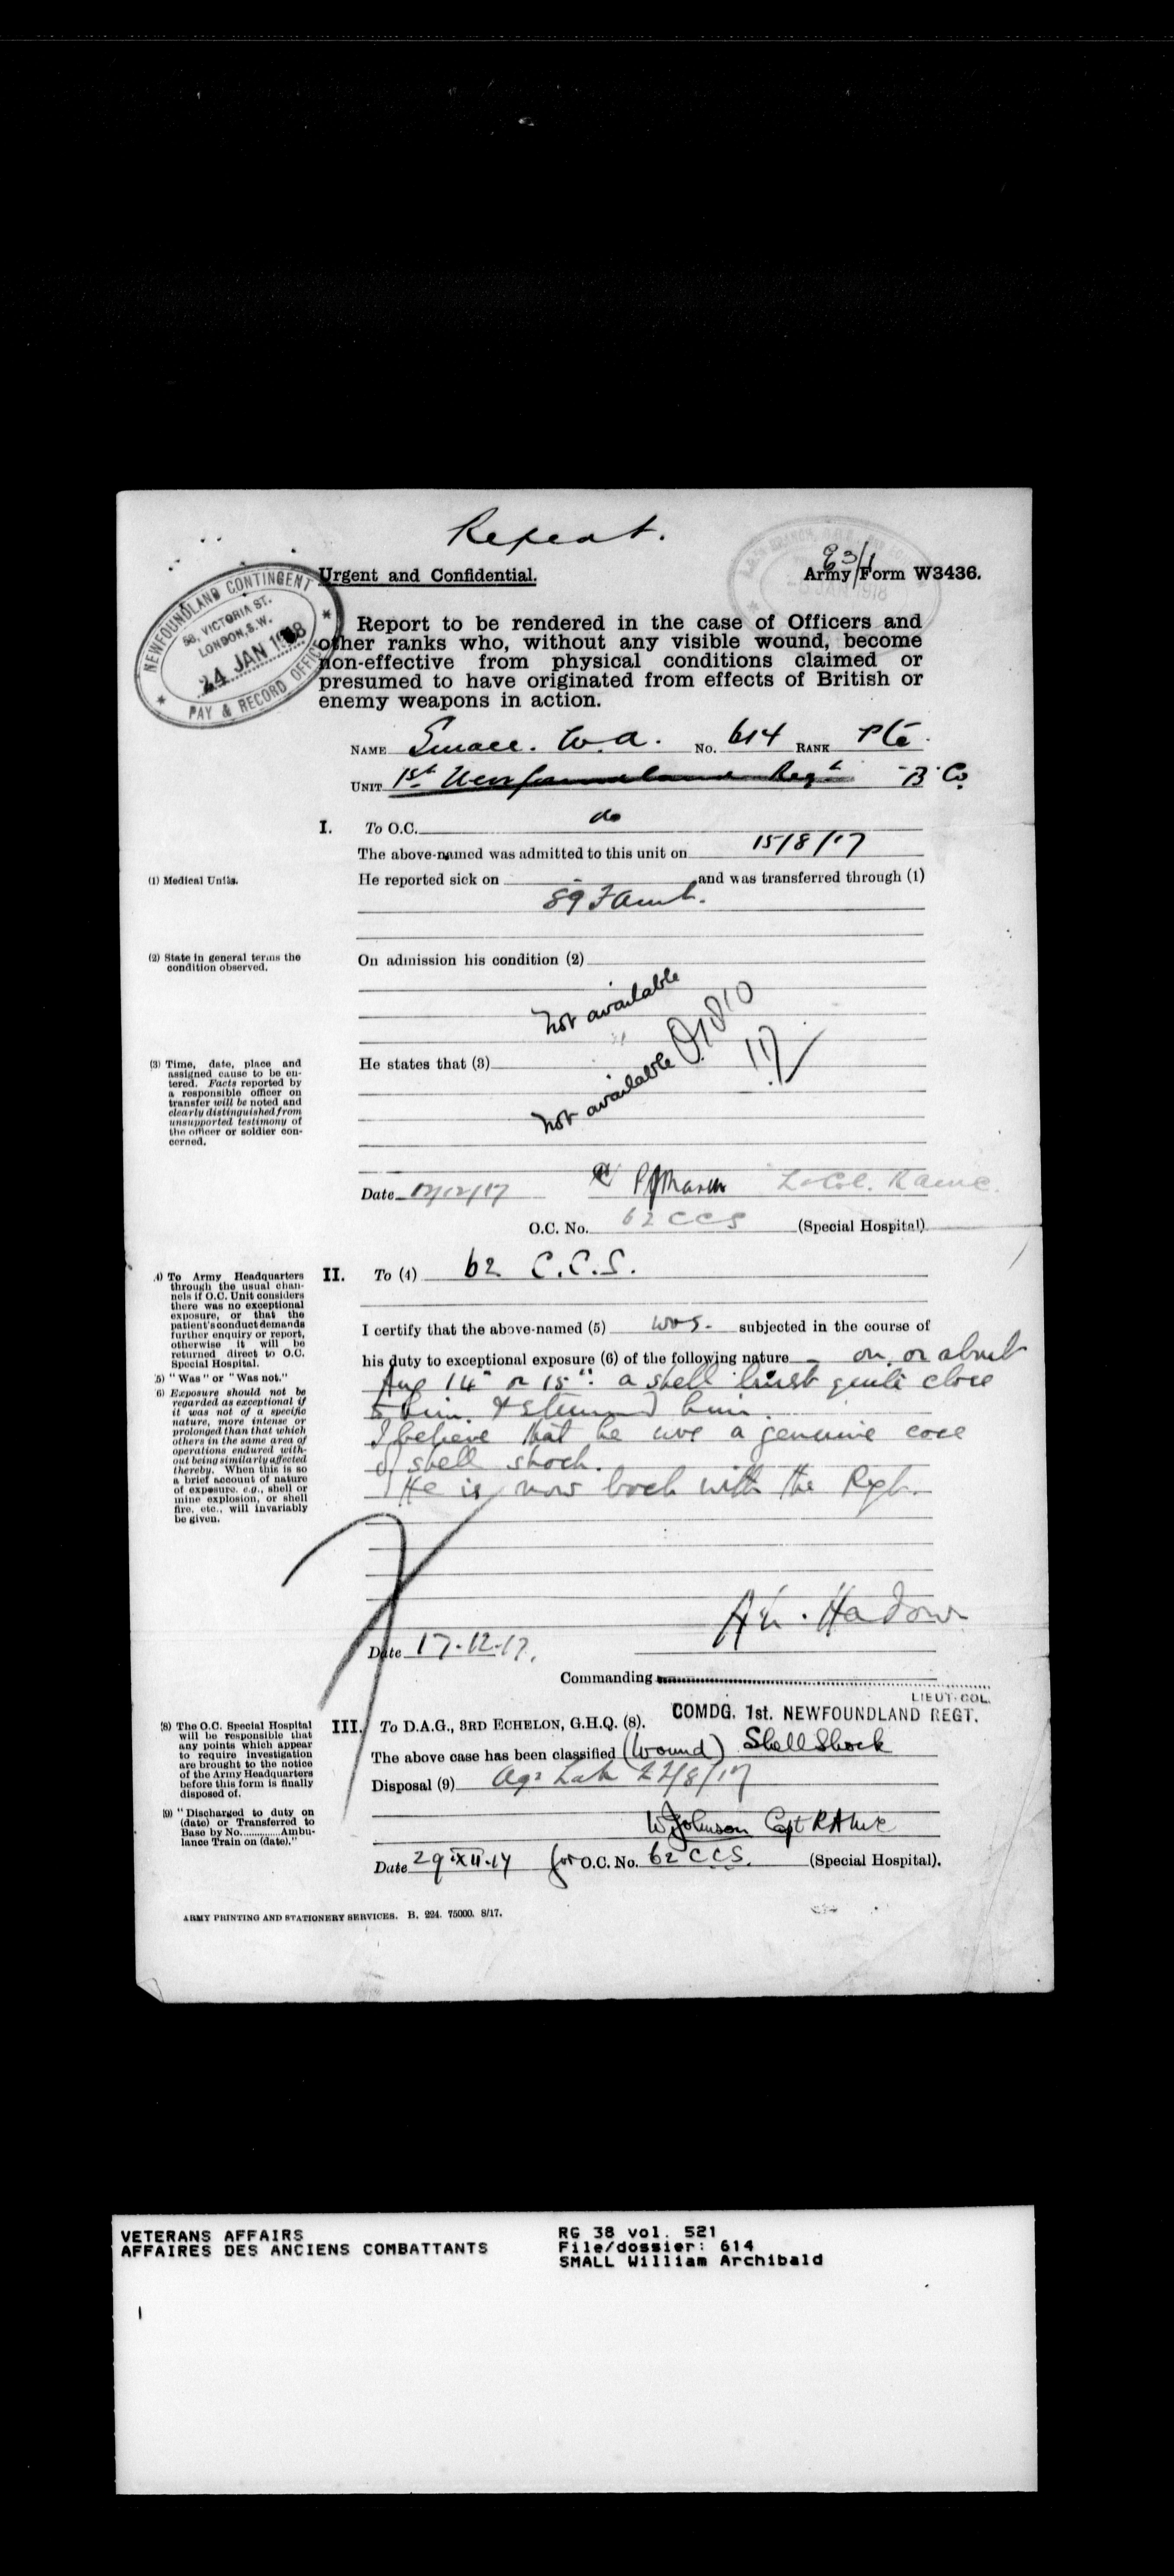 Repeat.
Urgent and Confidential.
Army Form W3436.
NEWFOUNDLAND CONTINGENT
58, VICTORIA ST.
LONDON, S.W.
24 JAN 1918
PAY & RECORD OFFICE
JAN 1918
Report to be rendered in the case of Officers and
other ranks who, without any visible wound, become
non-effective from physical conditions claimed or
presumed to have originated from effects of British or
enemy weapons in action.
NAME Small. W.A. No. 614 RANK Pte.
UNIT 1st Newfoundland Regt "B" Co.
I. To O.C. do
The above-named was admitted to this unit on 15/8/17
(1) Medical Units.
He reported sick on - and was transferred through (1)
89 F Amb.
(2) State in general terms the
condition observed.
On admission his condition (2)
Not available
(3) Time, date, place and
assigned cause to be en-
tered. Facts reported by
a responsible officer on
transfer will be noted and
clearly distinguished from
unsupported testimony of
the officer or soldier con-
cerned.
He states that (3)
Not available
Date 12/12/17 Lt Col. RAMC.
O.C. No. 62 CCS (Special Hospital)
II. To (4) 62 C.C.S.
4) To Army Headquarters
through the usual chan-
nels if O.C. Unit considers
there was no exceptional
exposure, or that the
patient's conduct demands
further enquiry or report,
otherwise it will be
returned direct to O.C.
Special Hospital.
5) "Was" or "Was not."
6) Exposure should not be
regarded as exceptional if
it was not of a specific
nature, more intense or
prolonged than that which
others in the same area of
operations endured with-
out being similarly affected
thereby. When this is so
a brief account of nature
of exposure, e.g., shell or
mine explosion, or shell
fire, etc., will invariably
be given.
I certify that the above-named (5) was. subjected in the course of
his duty to exceptional exposure (6) of the following nature - on or about
Aug 14th or 15th: a shell burst quite close
to him & stunned him.
I believe that he was a genuine case
of shell shock.
He is now back with the Regt.
A.E. Hadow
Date 17-12-17.
Commanding
LIEUT-COL.
COMDG. 1st. NEWFOUNDLAND REGT.
III. To D.A.G., 3RD ECHELON, G.H.Q. (8).
(8) The O.C. Special Hospital
will be responsible that
any points which appear
to require investigation
are brought to the notice
of the Army Headquarters
before this form is finally
disposed of.
(9) "Discharged to duty on
(date) or Transferred to
Base by No.............Ambu-
lance Train on (date)."
The above case has been classified (Wound) Shell Shock
Disposal (9) 22/8/17
W Johnson Capt RAMC
Date 29.XII.17 for O.C. No. 62 CCS. (Special Hospital).
ARMY PRINTING AND STATIONERY SERVICES. B. 224. 75000. 8/17.
VETERANS AFFAIRS
AFFAIRES DES ANCIENS COMBATTANTS
RG 38 vol. 521
File/dossier: 614
SMALL William Archibald